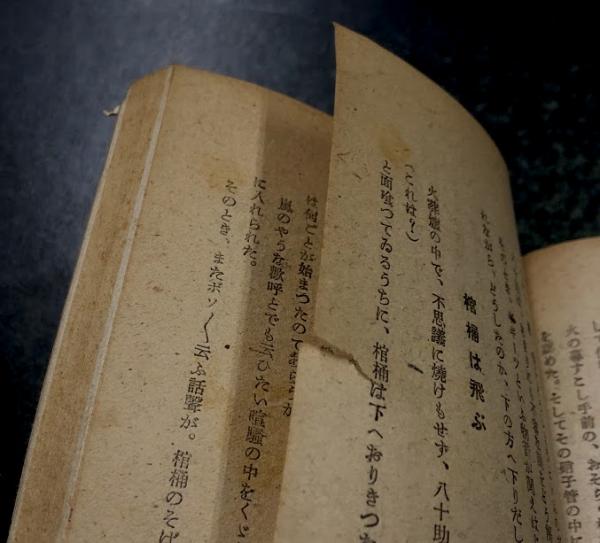 れながら、どうしたのか、下の方へ下りだし
棺桶は飛ぶ
火葬爐の中で、不思議に燒けもせず、八十助
(これは?)
と面喰つてゐるうちに、棺桶は下へおりきつた
は何ごとが始まつたのであらうか
嵐のやうな歡呼とでも云ひたい喧騷の中をくゞ
に入れられた。
そのとき、またボソ〱云ふ話聲が。棺桶のそば
火の幕すこし手前の、おそら
を認めた。そしてその硝子管の中に